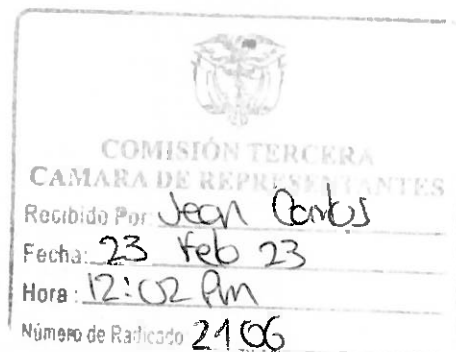 COMISIÓN TERCERA
CAMARA DE REPRESENTANTES
Recibido Por: Jean Carlos
Fecha: 23 Feb 23
Hora: 12:02 Pm
Número de Radicado 2106